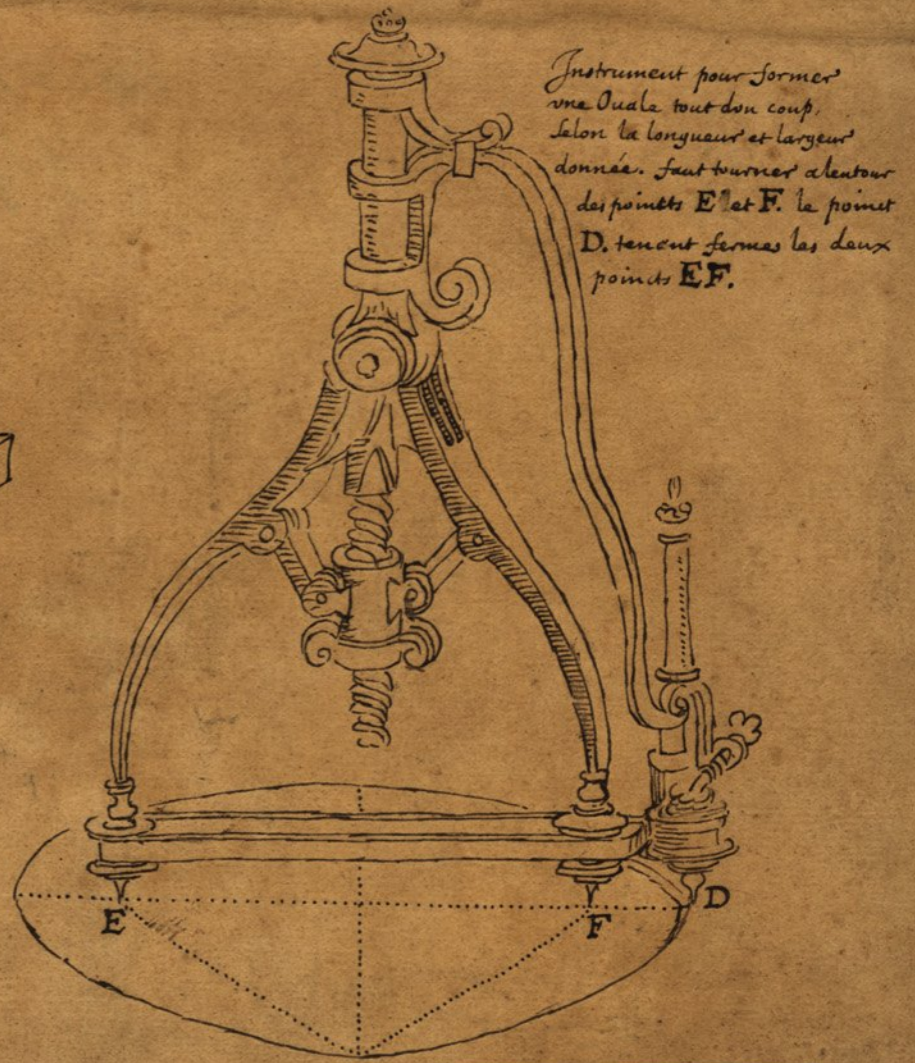 Instrument pour former
vne Ouale tout d'vn coup,
selon la longueur et largeur
donnée. faut tourner alentour
des poincts E et F. le poinct
D. tenant fermes les deux
poincts EF.
E
F
D